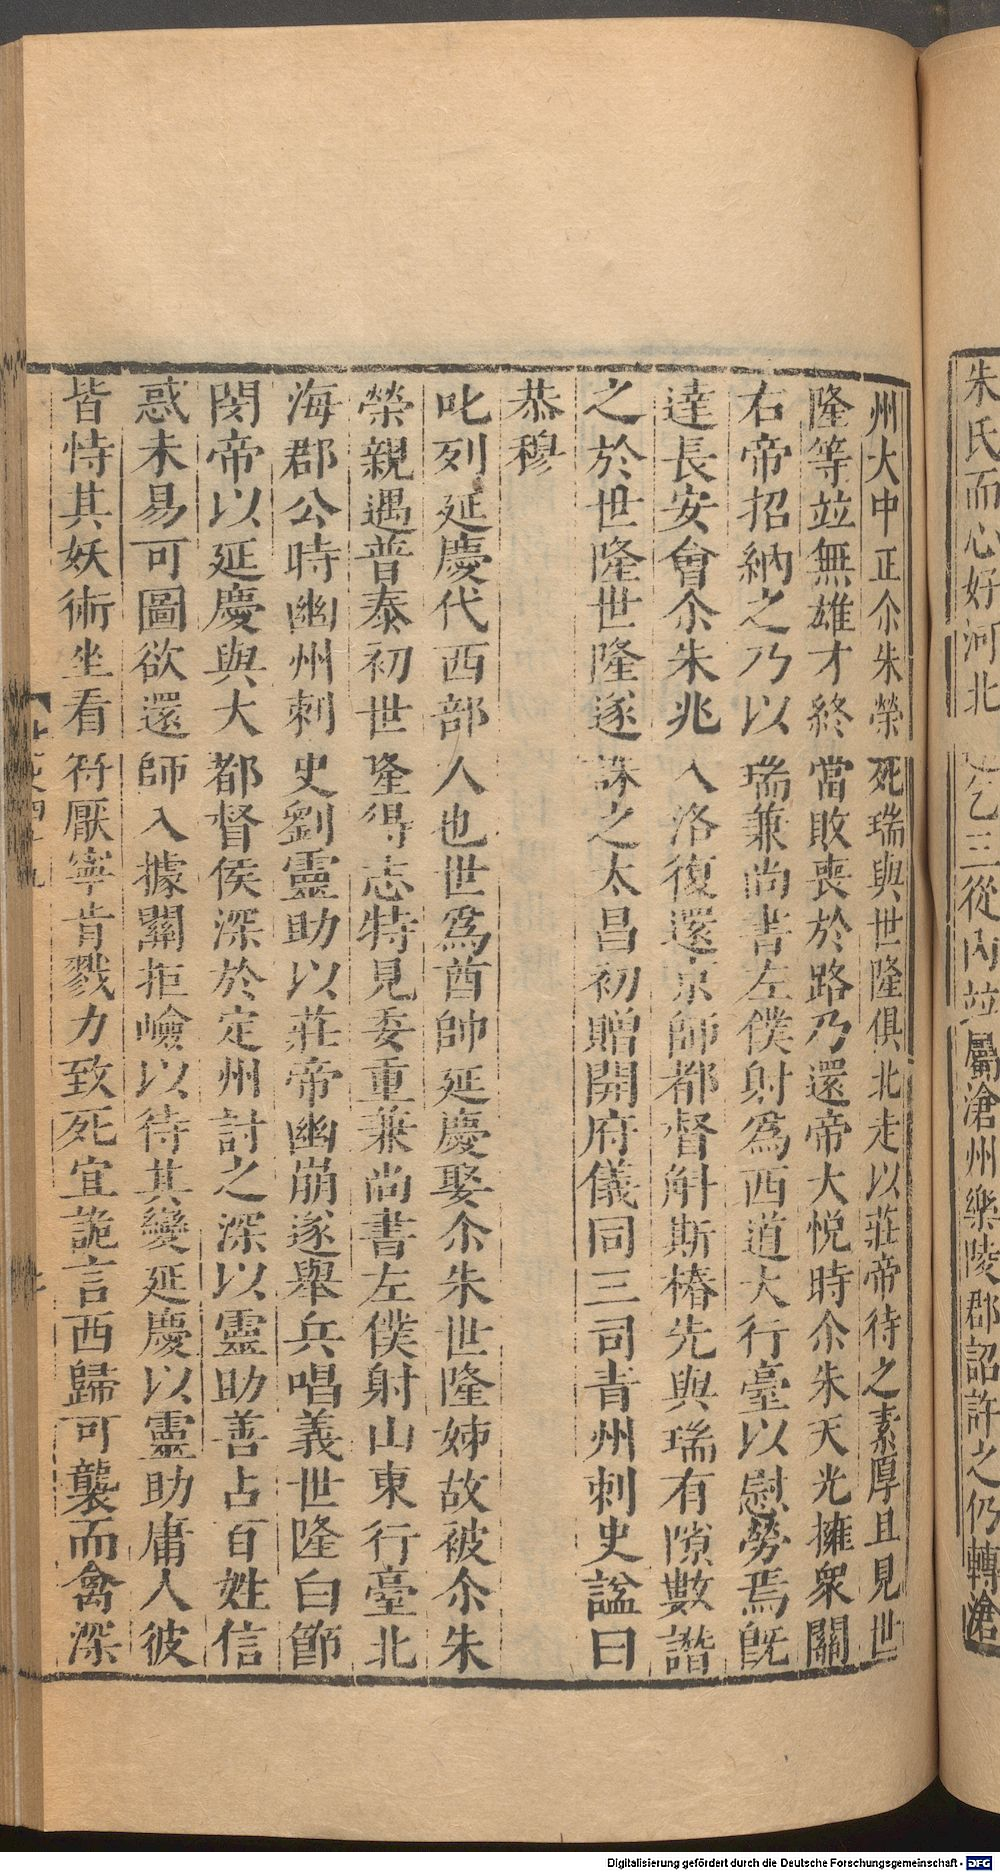 朱氏而心好河北 乞三從內並屬滄州樂陵郡詔許之仍轉滄
州大中正尒朱榮死瑞與世隆俱北走以莊帝待之素厚且見世
隆等並無雄才終當敗喪於路乃還帝大悅時尒朱天光擁衆關
右帝招納之乃以瑞兼尚書左僕射爲西道大行臺以慰勞焉旣
達長安會尒朱兆入洛復還京師都督斛斯椿先與瑞有隙數譖
之於世隆世隆遂誅之太昌初贈開府儀同三司青州刺史謚曰
恭穆
叱列延慶代西部人也世爲酋帥延慶娶尒朱世隆姊故被尒朱
榮親遇普泰初世隆得志特見委重兼尚書左僕射山東行臺北
海郡公時幽州刺史劉靈助以莊帝幽崩遂舉兵唱義世隆白節
閔帝以延慶與大都督侯深於定州討之深以靈助善占百姓信
惑未易可圖欲還師入據關拒嶮以待其變延慶以靈助庸人彼
皆恃其妖術坐看符厭寧肯戮力致死宜詭言西歸可襲而禽深
Digitalisierung gefördert durch die Deutsche Forschungsgemeinschaft - DFG